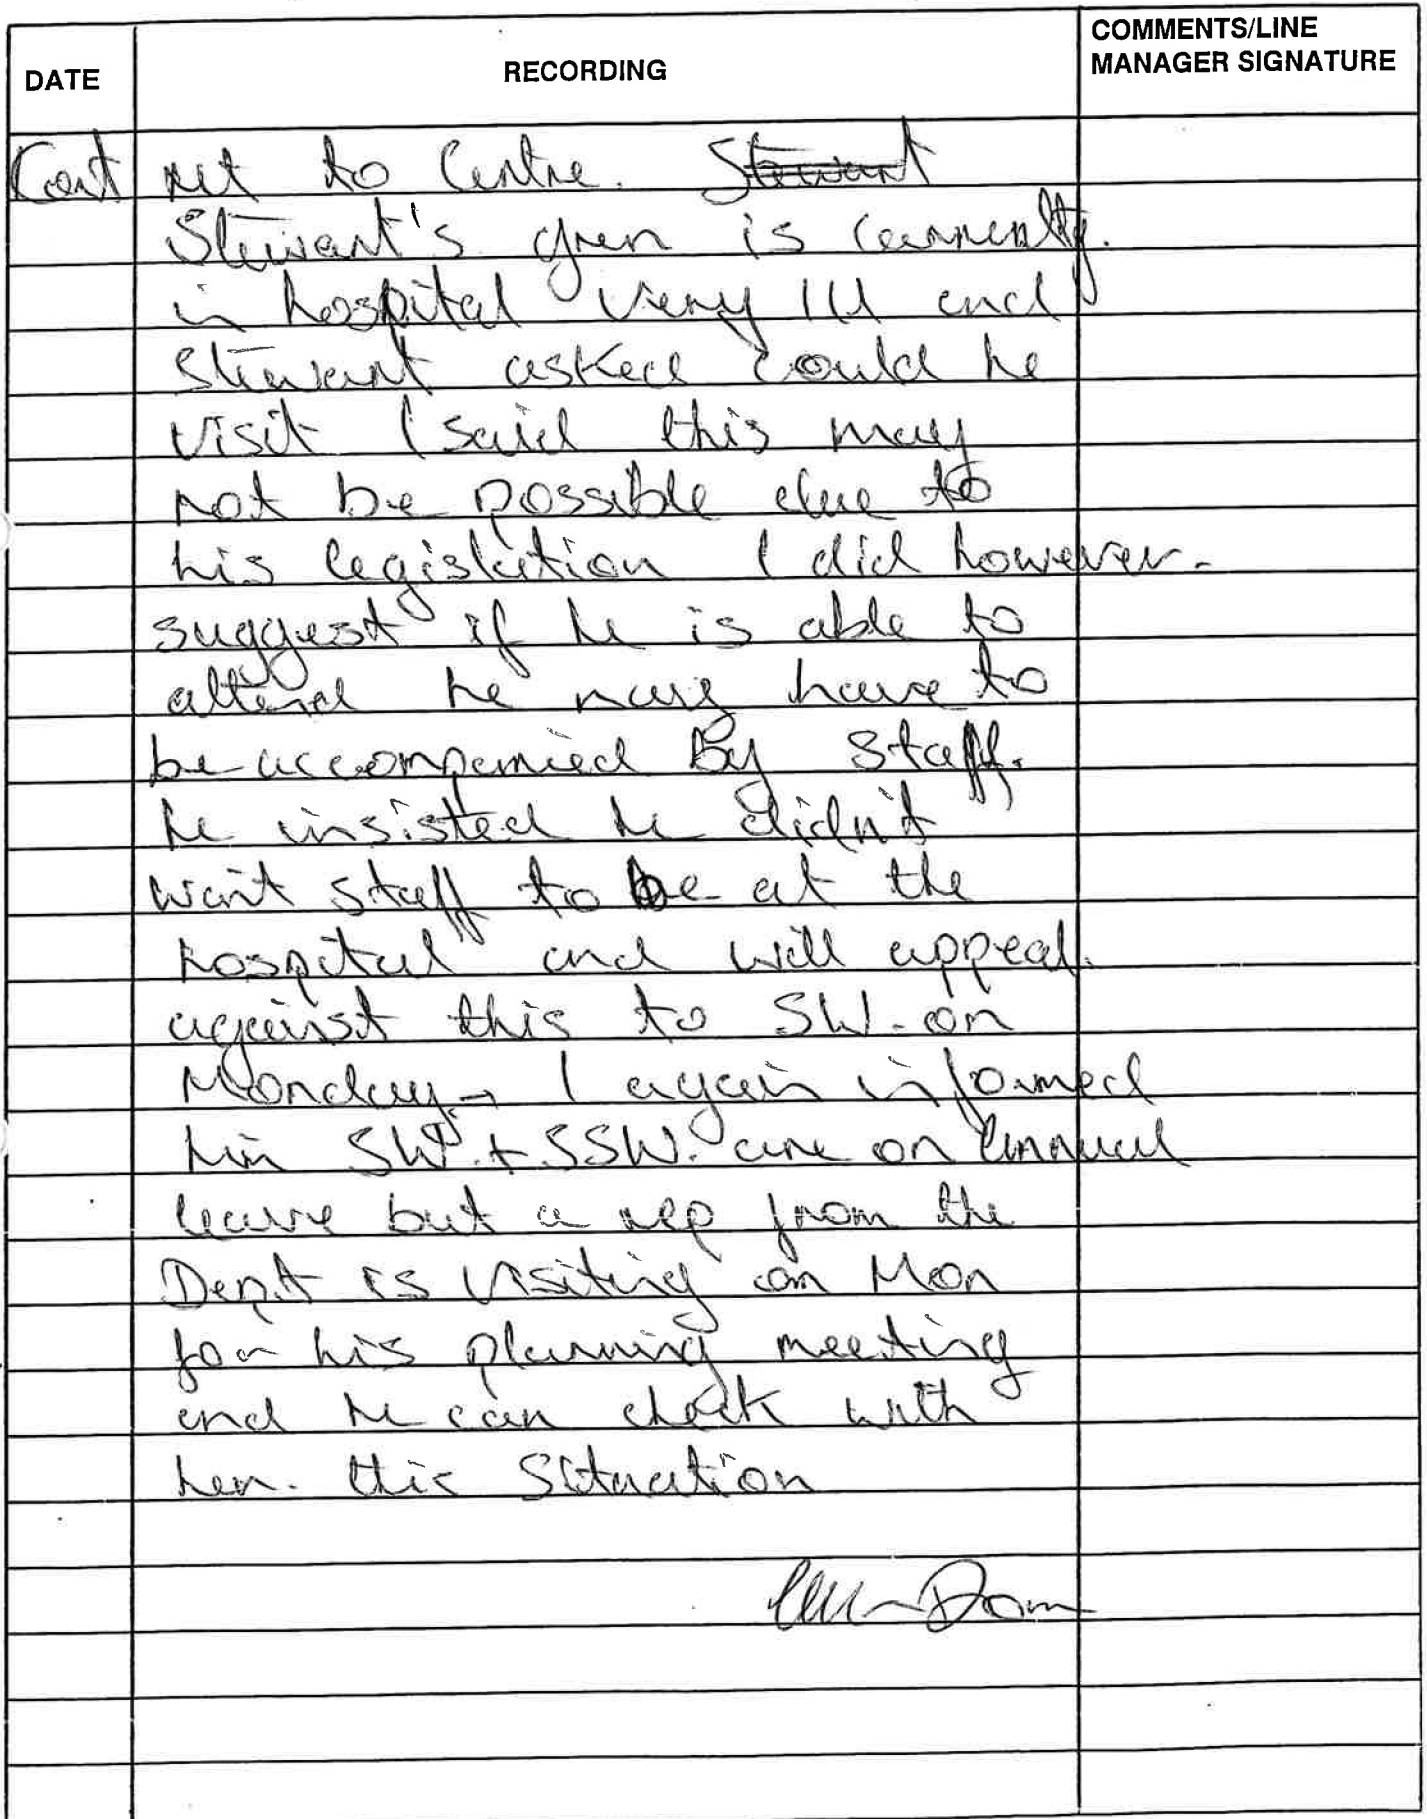 DATE
RECORDING
COMMENTS/LINE
MANAGER SIGNATURE
Cont ret to Centre. Stewart
Stewart's gran is currently.
in hospital very ill and
Stewart asked could he
visit I said this may
not be possible due to
his legislation I did however.
suggest if he is able to
attend he may have to
be accompanied By staff.
he insisted he didn't
want staff to be at the
hospital and will appeal.
against this to SW. on
Monday. I again informed
him SW. + SSW. are on annual
leave but a rep from the
Dept is visiting on Mon
for his planning meeting
and he can check with
her. this situation